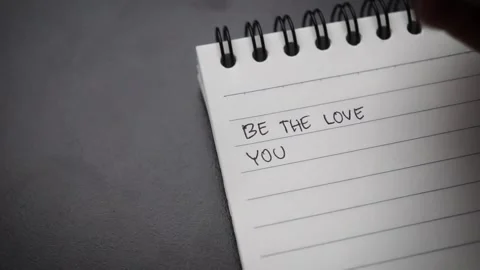 BE THE LOVE
YOU